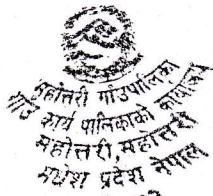 महोत्तरी गाँउपालिका
गाँउ कार्य पालिकाको कार्यालय
महोत्तरी, महोत्तरी
मधेश प्रदेश नेपाल